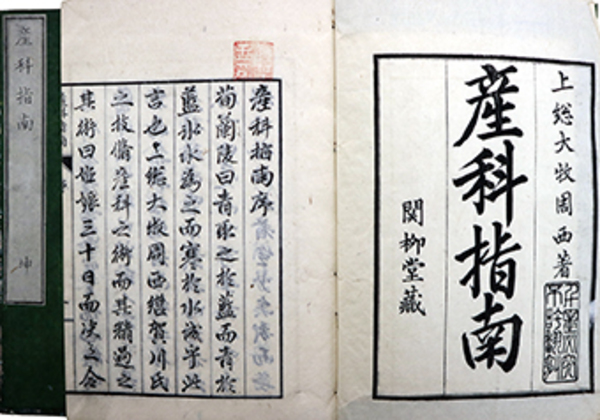 上総大牧周西著
産科指南
関柳堂藏
産科指南序
荀蘭陵曰青取之於藍而青於
藍氷水為之而寒於水誠乎此
言也上総大牧周西継賀川氏
之技脩産科之術而其精過之
其術曰妊娠三十日而決之合
産科指南 坤